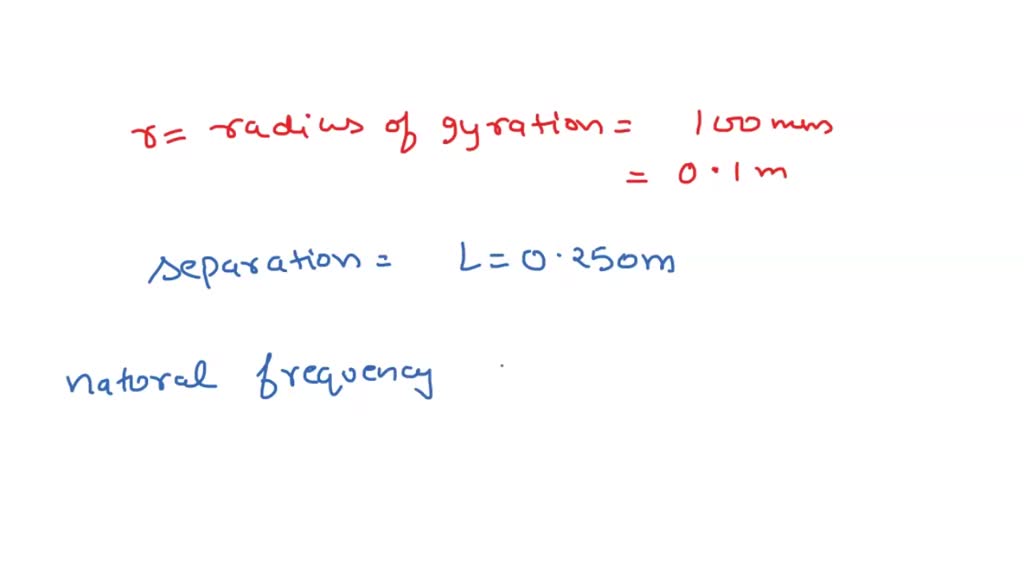 r = radius of gyration = 100 mm
= 0.1 m
separation = L = 0.250m
natoral frequency